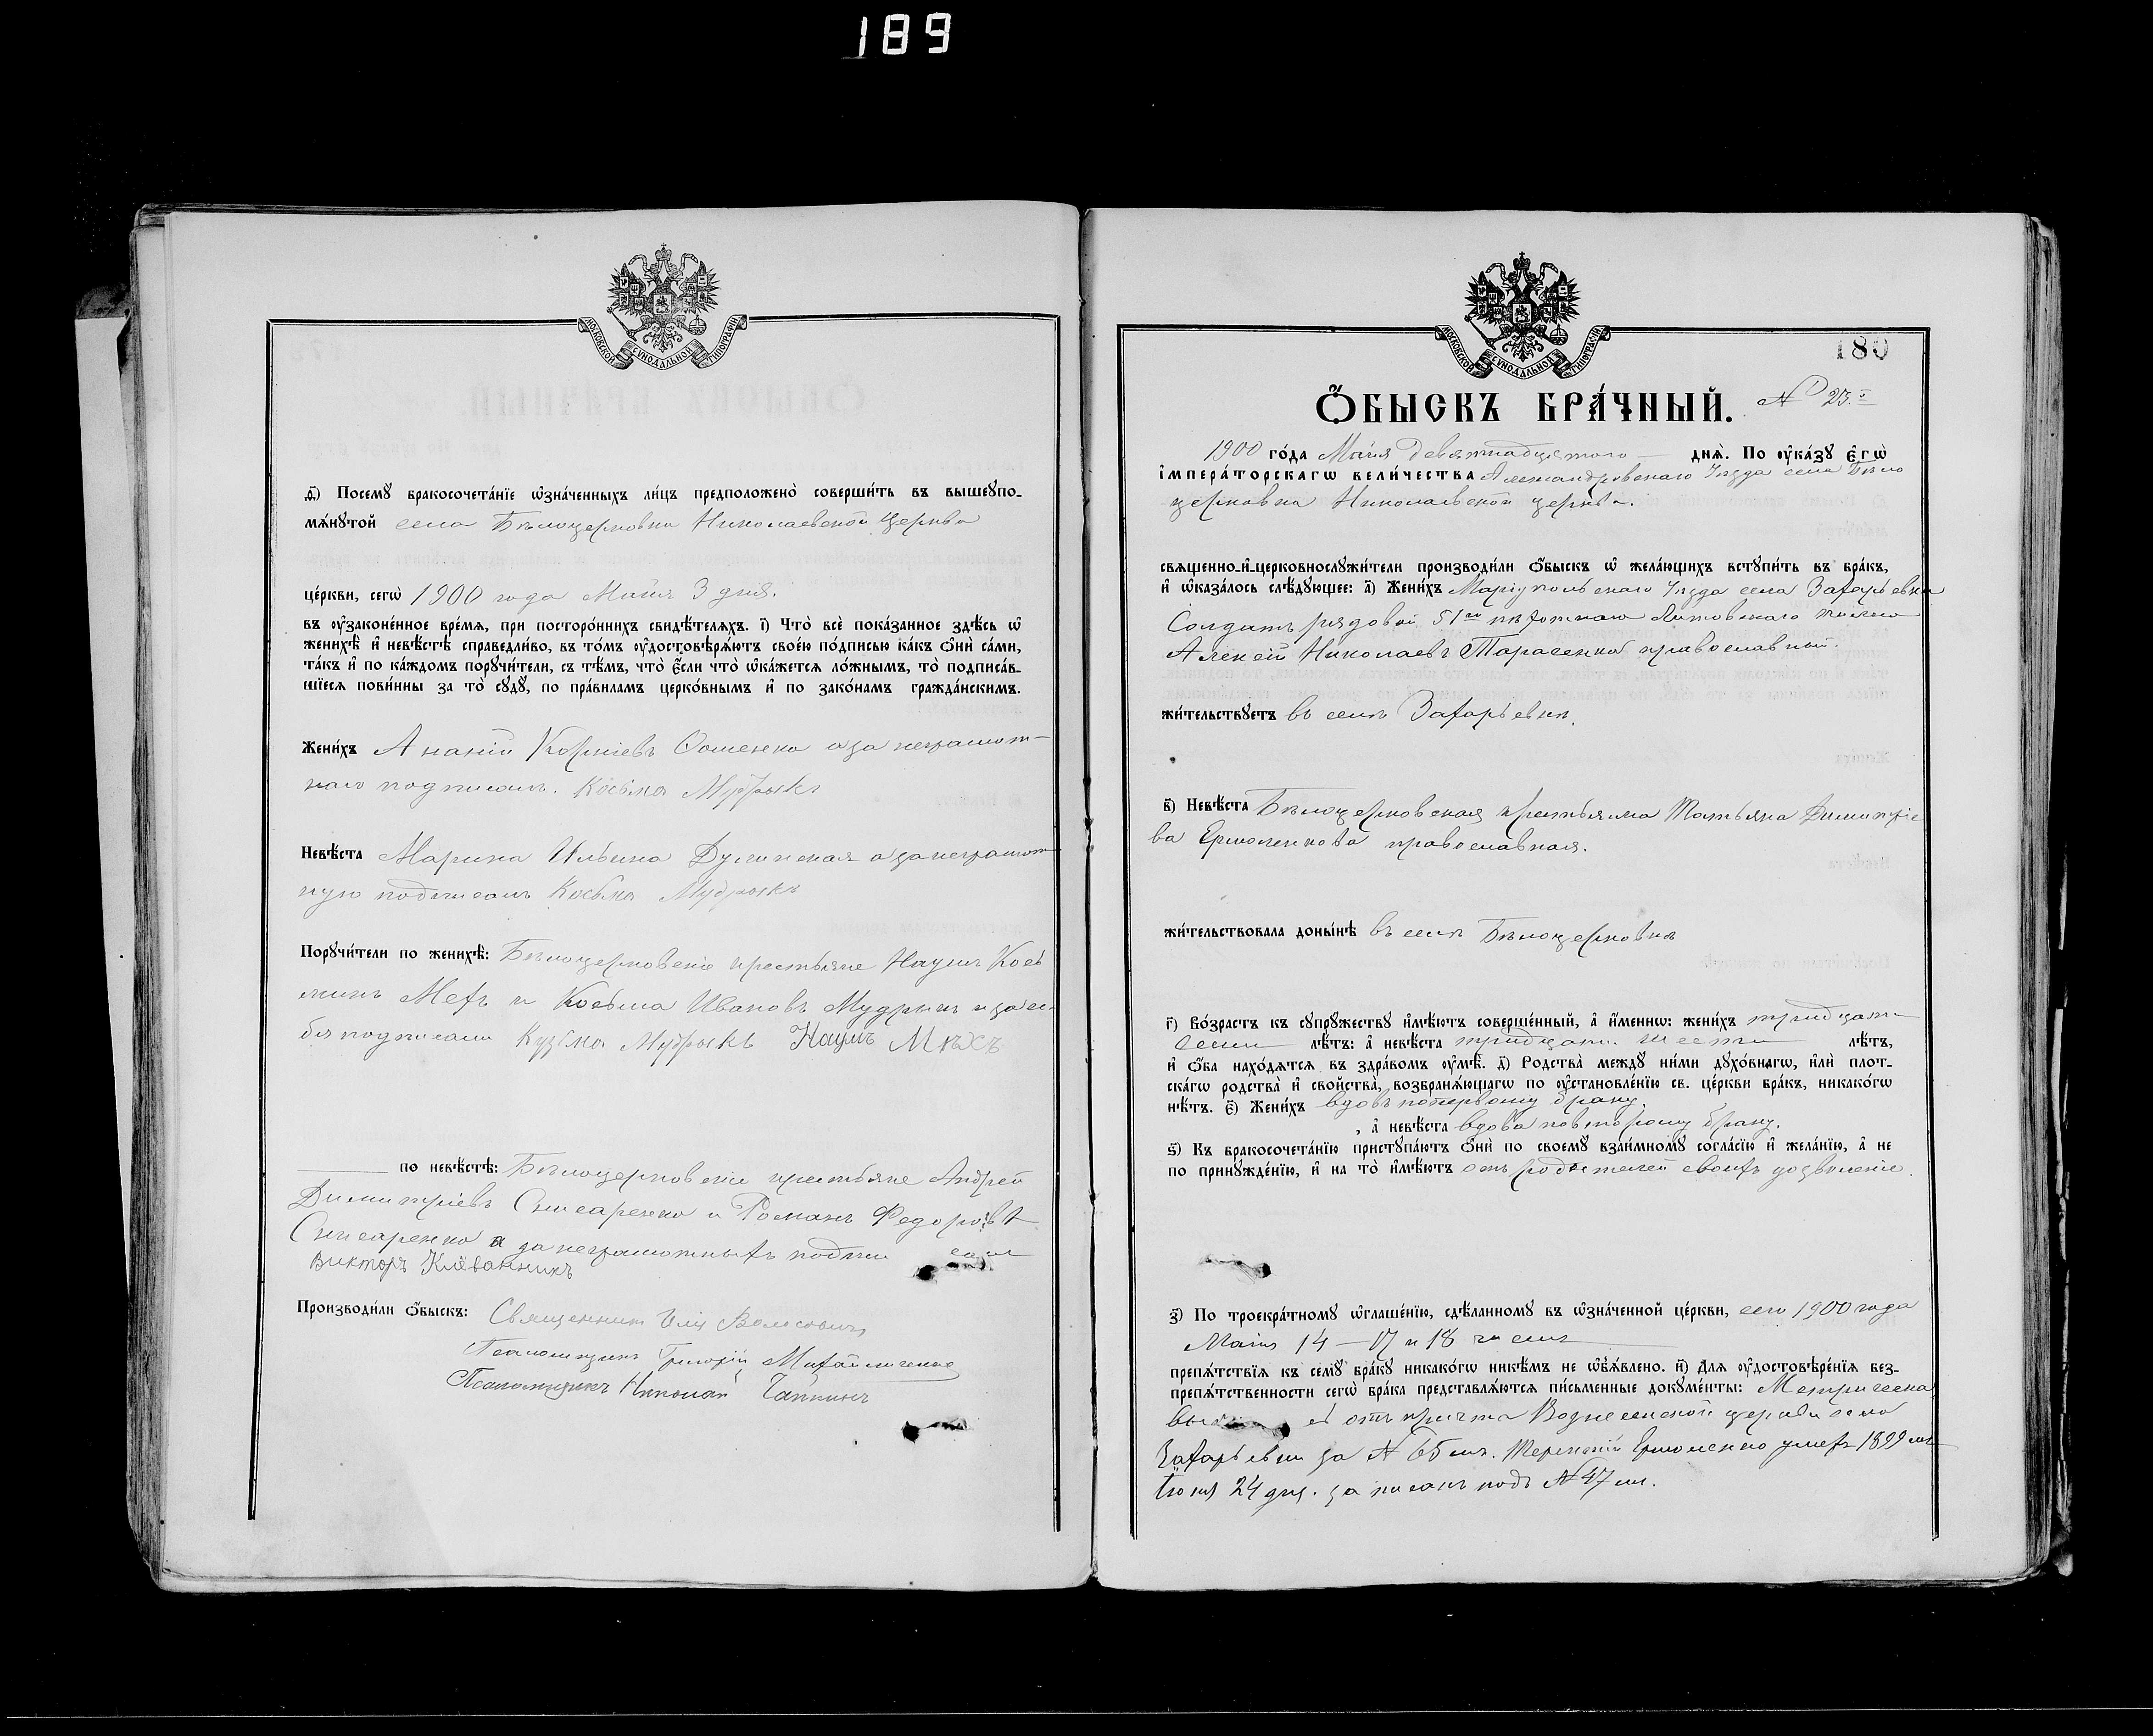 189
МОСКОВСКОЙ СѴНОДАЛЬНОЙ ТИПОГРАФІИ
ѳ҃) Посемꙋ бракосочета́нїе ѡ҆зна́ченныхъ ли́цъ предположено̀ соверши́ть въ вышеупо-
мѧ́нꙋтой села Бѣлоцерковки Николаевской Церкви
це́ркви, сегѡ̀ 1900 года Маія 3 дня.
въ оу҆зако́ненное вре́мѧ, при посторо́ннихъ свидѣ́телѧхъ. і҃) Что̀ всѐ пока́занное здѣ́сь ѡ҆
женихѣ̀ и҆ невѣ́стѣ справедли́во, въ то́мъ оу҆достовѣрѧ́ютъ свое́ю по́дписью ка́къ ѻ҆нѝ са́ми,
та́къ и҆ по ка́ждомъ порꙋчи́тели, съ тѣ́мъ, что̀ є҆́сли что̀ ѡ҆ка́жетсѧ ло́жнымъ, то̀ подписа́в-
шїесѧ пови́нны за то̀ сꙋдꙋ̀, по пра́виламъ церко́внымъ и҆ по зако́намъ гражда́нскимъ.
Жени́хъ Ананій Корніевъ а за неграмот-
наго подписалъ. Косьма Мудрыкъ
Невѣ́ста Марина Ильина а за неграмот
ную подписалъ Косьма Мудрыкъ
Порꙋчи́тели по женихѣ̀: Бѣлоцерковскіе крестьяне Наумъ Кось
минъ Мехъ и Косьма Ивановъ Мудрыкъ и за се-
бя подписали Кузьма Мудрыкъ Наумъ Мѣхъ
по невѣ́стѣ: Бѣлоцерковскіе крестьяне Андрей
Димитріевъ Снисаренко и Романъ Федоровъ
Снисаренко а за неграмотныхъ подпи салъ
Викторъ
Производи́ли ѻ҆́быскъ: Священникъ Илія
Псаломщикъ Григорій Михайличенко
Псаломщикъ Николай
МОСКОВСКОЙ СѴНОДАЛЬНОЙ ТИПОГРАФІИ
180
Ѻ҆́БЫСКЪ БРА́ЧНЫЙ. № 23.
1900 го́да Маія девятнадцатаго днѧ̀. По оу҆ка́зꙋ є҆гѡ̀
і҆мпера́торскагѡ вели́чества Александровскаго Уѣзда села Бѣло
церковки Николаевской церкви.
свѧще́нно-и҆-церковнослꙋжи́тели производи́ли ѻ҆́быскъ ѡ҆ жела́ющихъ вступи́ть въ бра́къ,
и҆ ѡ҆каза́лось слѣ́дꙋющее: а҃) Жени́хъ Маріупольскаго Уѣзда села Захарьевки
Солдатъ рядовой 51го пѣхотнаго Литовскаго полка
Алексій Николаевъ Тарасенко православный.
жи́тельствꙋетъ въ селѣ Захарьевкѣ.
в҃) Невѣ́ста Бѣлоцерковская крестьянка Татьяна Димитріе
ва Ермоленкова православная.
жи́тельствовала доны́нѣ въ селѣ Бѣлоцерковкѣ
г҃) Во́зрастъ къ сꙋпрꙋ́жествꙋ и҆мѣ́ютъ соверше́нный, а҆ и҆́менно: жени́хъ тридцати
семи лѣ́тъ: а҆ невѣ́ста тридцати шести лѣ́тъ,
и҆ ѻ҆́ба нахо́дѧтсѧ въ здра́вомъ оу҆мѣ̀. д҃) Родства̀ междꙋ ни́ми дꙋхо́внагѡ, и҆лѝ плот-
ска́гѡ родства̀ и҆ сво́йства̀, возбранѧ́ющагѡ по оу҆становле́нїю св. це́ркви бра́къ, никако́гѡ
нѣ́тъ. є҃) Жени́хъ вдовъ по первому браку.
, а҆ невѣ́ста вдова по второму браку.
ѕ҃) Къ бракосочета́нїю пристꙋпа́ютъ ѻ҆нѝ по своемꙋ̀ взаи́мномꙋ согла́сїю и҆ жела́нїю, а҆ не
по принꙋжде́нїю, и҆ на то̀ и҆мѣ́ютъ отъ родителей своихъ дозволеніе.
з҃) По троекра́тномꙋ ѡ҆глаше́нїю, сдѣ́ланномꙋ въ ѡ҆зна́ченной це́ркви, сего 1900 года
Маія 14 — 17 и 18 чиселъ
препѧ́тствїѧ къ семꙋ̀ бра́кꙋ никако́гѡ никѣ́мъ не ѡ҆б̾ѧ́влено. и҃) Длѧ оу҆достовѣре́нїѧ без-
препѧ́тственности сегѡ̀ бра́ка представлѧ́ютсѧ пи́сьменные докꙋме́нты: Метрическа
отъ причта Вознесенской церкви села
Захарьевки за № 65 мъ. Терентій Ермоленко умеръ 1899 г.
Іюня 24 дня. записанъ подъ № 47 мъ.